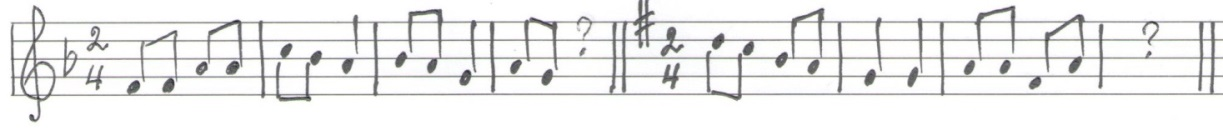 2 4 ? 2 4 ?